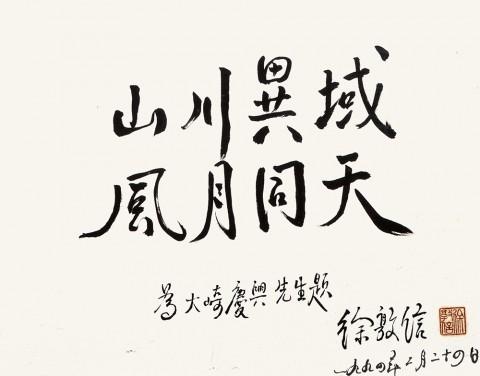 山川異域
風月同天
為大崎慶興先生題
徐敦信
一九九四年二月二十四日